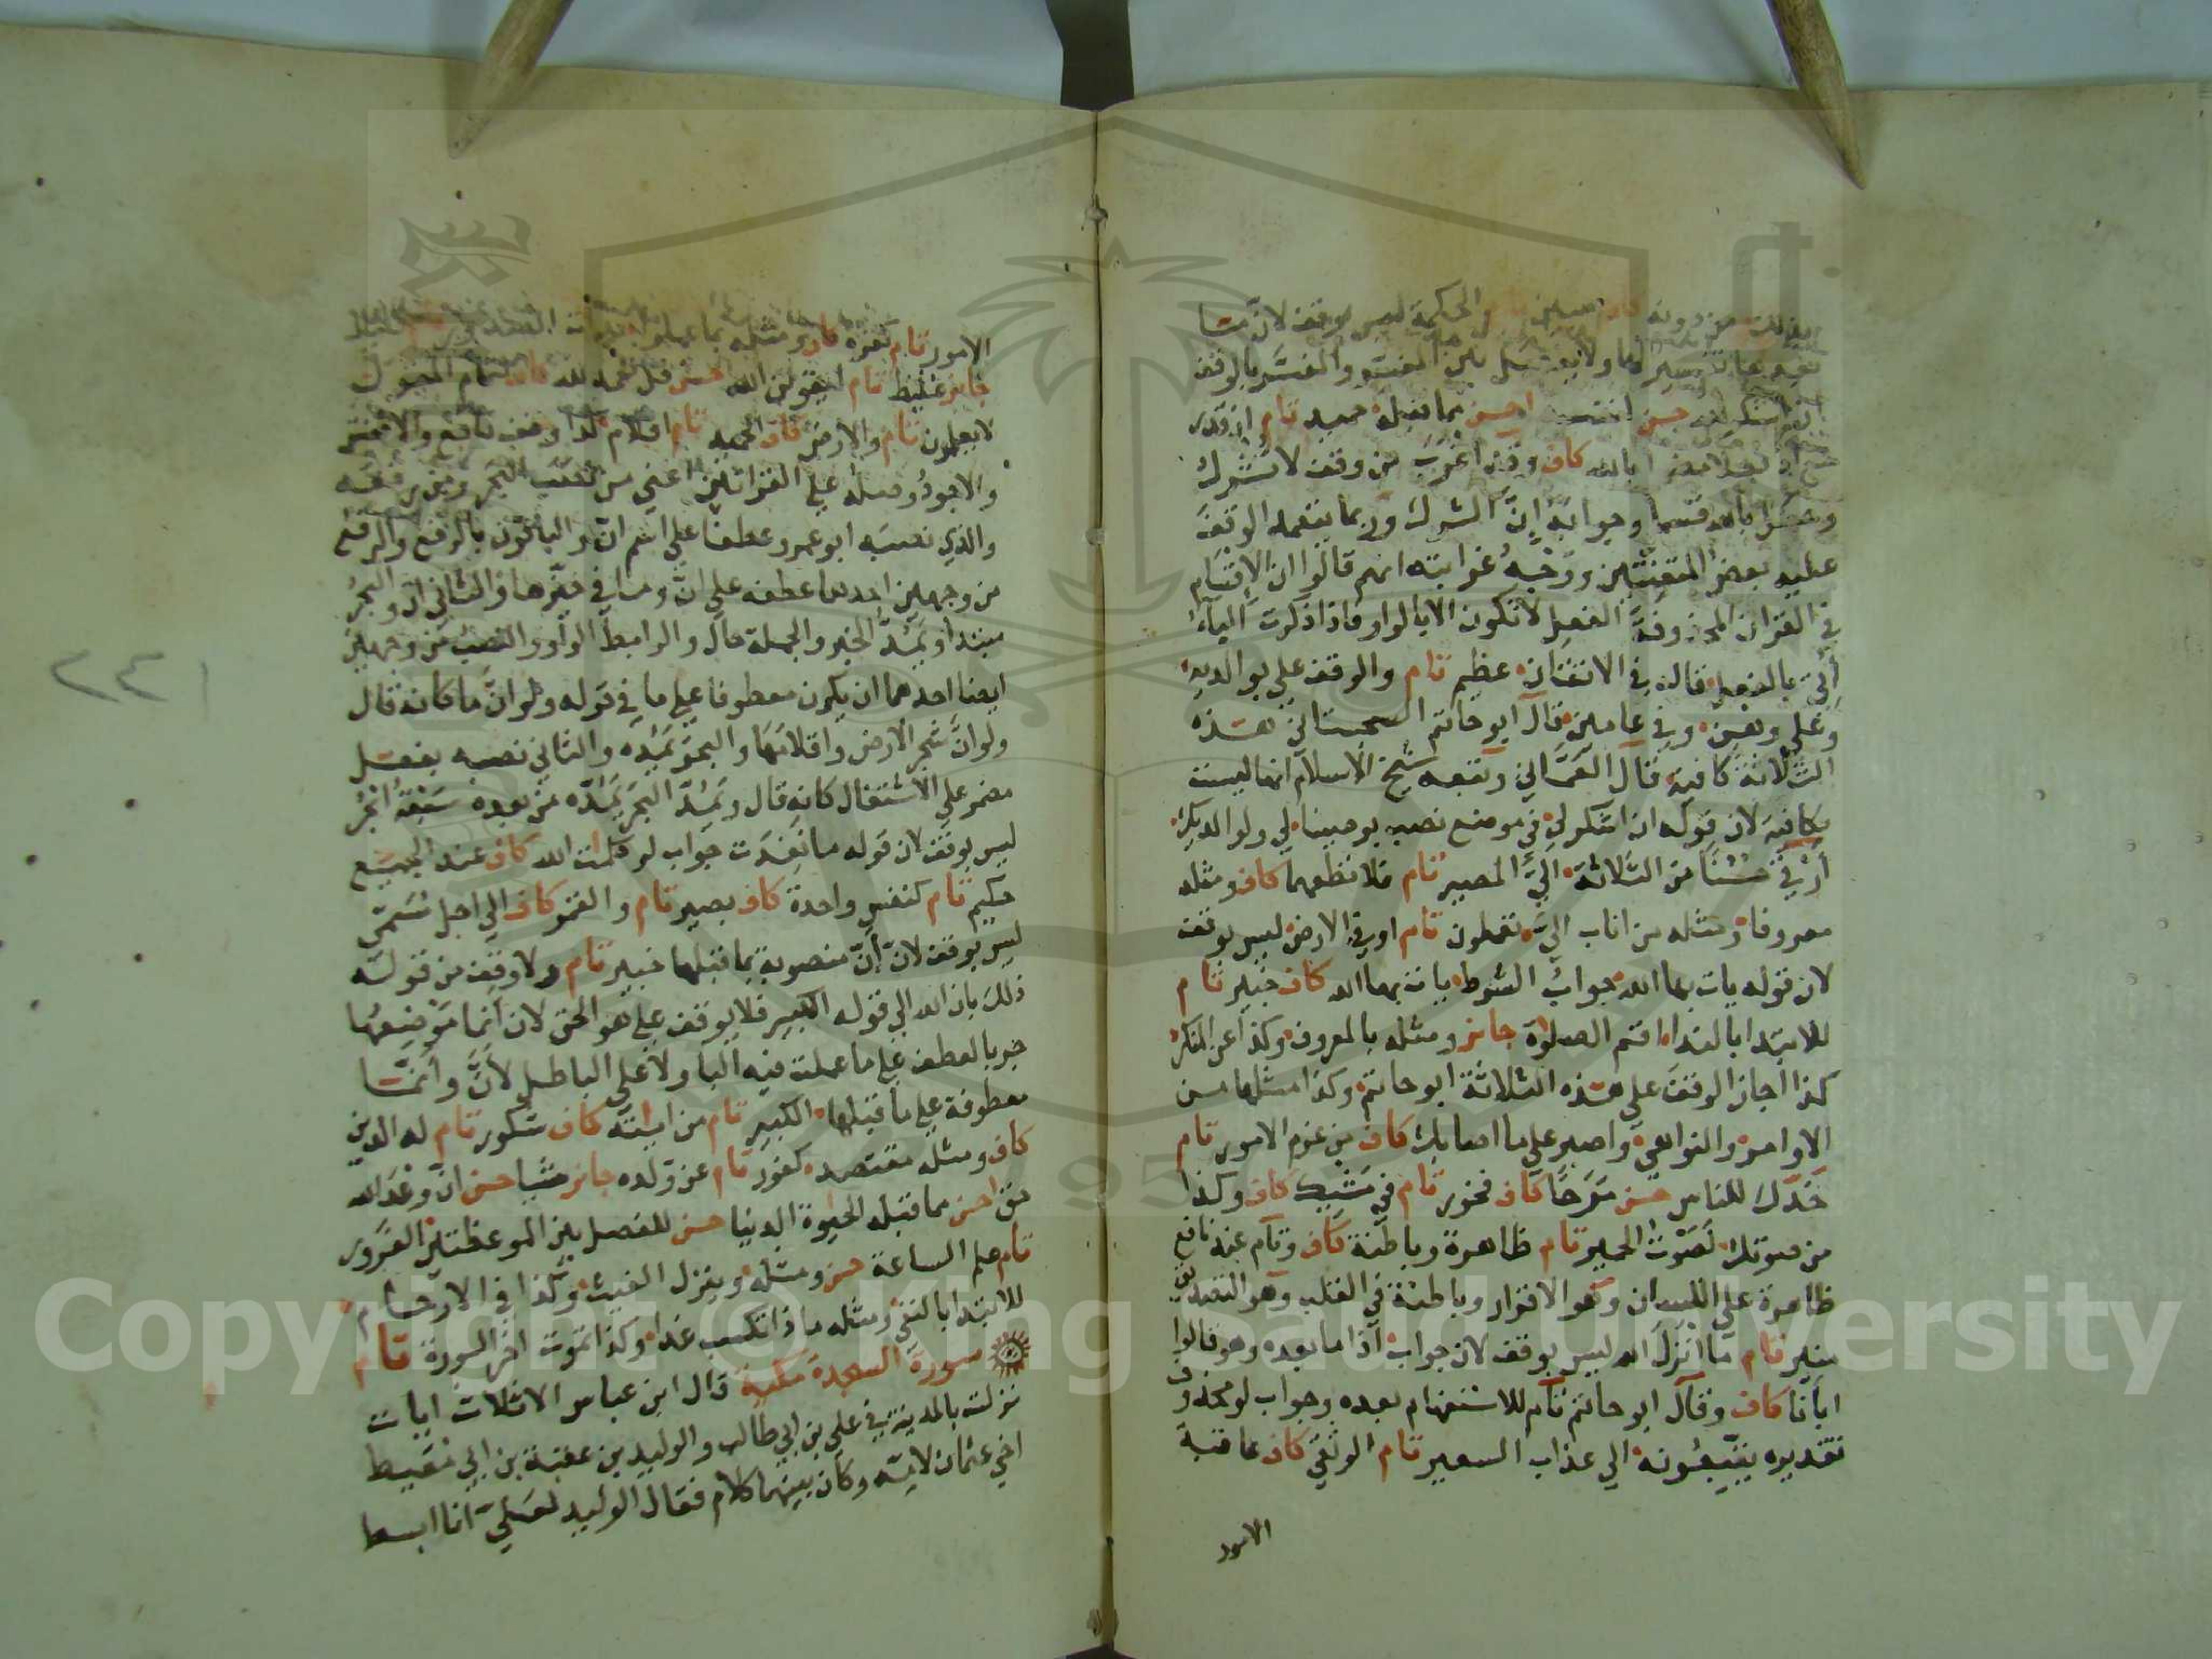 من دونه كاف مبين تام الحكمة ليس بوقف لان ما
بعدها تفسير لها ولا يفصل بين المفسر والمفسر بالوقف
ان اشكر لله حسن لنفسه احسن مما قبله حميد تام ان قدر
بالله كاف وقد اغرب من وقف لا تشرك
وجعل بالله قسما وجوابه إنّ الشرك وربما يتعمد الوقف
عليه بعض المتعنتين ووجه غرابته انهم قالوا ان الإقسام
في القران المحذوفة الفعل لا تكون الا بالواو فاذا ذكرت الباء
أُتي بالفعل قاله في الاتقان عظيم تام والوقف على بوالديه
وعلى وهن وفي عامين قال ابو حاتم السجستاني هذه
الثلاثة كافية قال العماني وتبعه شيخ الاسلام انها ليست
بكافية لان قوله ان اشكر لي في موضع نصب بوصينا لي ولوالديك
أرقى حسنا من الثلاثة الي المصير تام فلا تطعهما كاف ومثله
معروفا ومثله من اناب الي تعملون تام او في الارض ليس بوقف
لان قوله يات بها الله جواب الشرط يات بها الله كاف خبير تام
للابتدا بالندا اقم الصلوة جائز ومثله بالمعروف وكذا عن المنكر
كذا اجاز الوقف على هذه الثلاثة ابو حاتم وكذا مثلها من
الاوامر والنواهي واصبر على ما اصابك كاف من عزم الامور تام
خدك للناس حسن مرحا كاف فخور تام في مشيك كاف وكذا
من صوتك لصوت الحمير تام ظاهرة وباطنة كاف وتام عند نافع
ظاهرة على اللسان وهو الاقرار وباطنة في القلب وهو التصديق
منير تام ما انزل الله ليس بوقف لان جواب اذا ما بعده وهو قالوا
اباءنا كاف وقال ابو حاتم تام للاستفهام بعده وجواب لو محذوف
تقديره يتبعونه الي عذاب السعير تام الوثقى كاف عاقبة
الامور
الامور تام كفره كاف ومثله بما عملوا الصدور تام غليظ
جائز غليظ تام ليقولن الله حسن قل الحمد لله كاف لتمام المقول
لا يعلمون تام والارض كاف الحميد تام اقلام كذا وقف نافع والاخفش
والاجود وصله على القراءتين اعني من نصب البحر ومن رفعه
والذي نصبه ابو عمرو عطفا على اسم انّ والباقون بالرفع والرفع
من وجهين احدهما عطفه على انّ وما في حيزها والثاني ان والبحر
مبتدا ويمدّه الخبر والجملة حال والرابط الواو والنصب من وجهين
ايضا احدهما ان يكون معطوفا على ما في قوله ولو انّ ما كانه قال
ولو انّ شجر الارض واقلامها والبحر يمدّه والثاني نصبه بفعل
مضمر على الاشتغال كانه قال ويمدّ البحر يمدّه من بعده سبعة ابحر
ليس بوقف لان قوله ما نفدت جواب لو كلمات الله كاف عند الجميع
حكيم تام كنفس واحدة كاف بصير تام والقمر كاف الي اجل مسمى
ليس بوقف لانّ أنّ منصوبة بما قبلها خبير تام ولا وقف من قوله
ذلك بان الله الي قوله الكبير فلا يوقف على هو الحق لان أنما موضعها
جر بالعطف على ما عملت فيه البا ولا على الباطل لأنّ وأنّما
معطوفة على ما قبلها الكبير تام من اياته كاف شكور تام له الدين
كاف ومثله مقتصد كفور تام عن ولده جائز شيا حسن انّ وعد الله
حق احسن مما قبله الحيوة الدنيا حسن للفصل بين الموعظتين الغرور
تام علم الساعة حسن ومثله وينزل الغيث وكذا في الارحام
للابتدا بالنفي ومثله ماذا تكسب غدا وكذا تموت اخر السورة تام
سورة السجدة مكية قال ابن عباس الا ثلاث ايات
نزلت بالمدينة في علي بن ابي طالب والوليد بن عقبة بن ابي معيط
اخي عثمان لامه وكان بينهما كلام فقال الوليد لعلي انا ابسط
٢٤١
Copyright © King Saud University